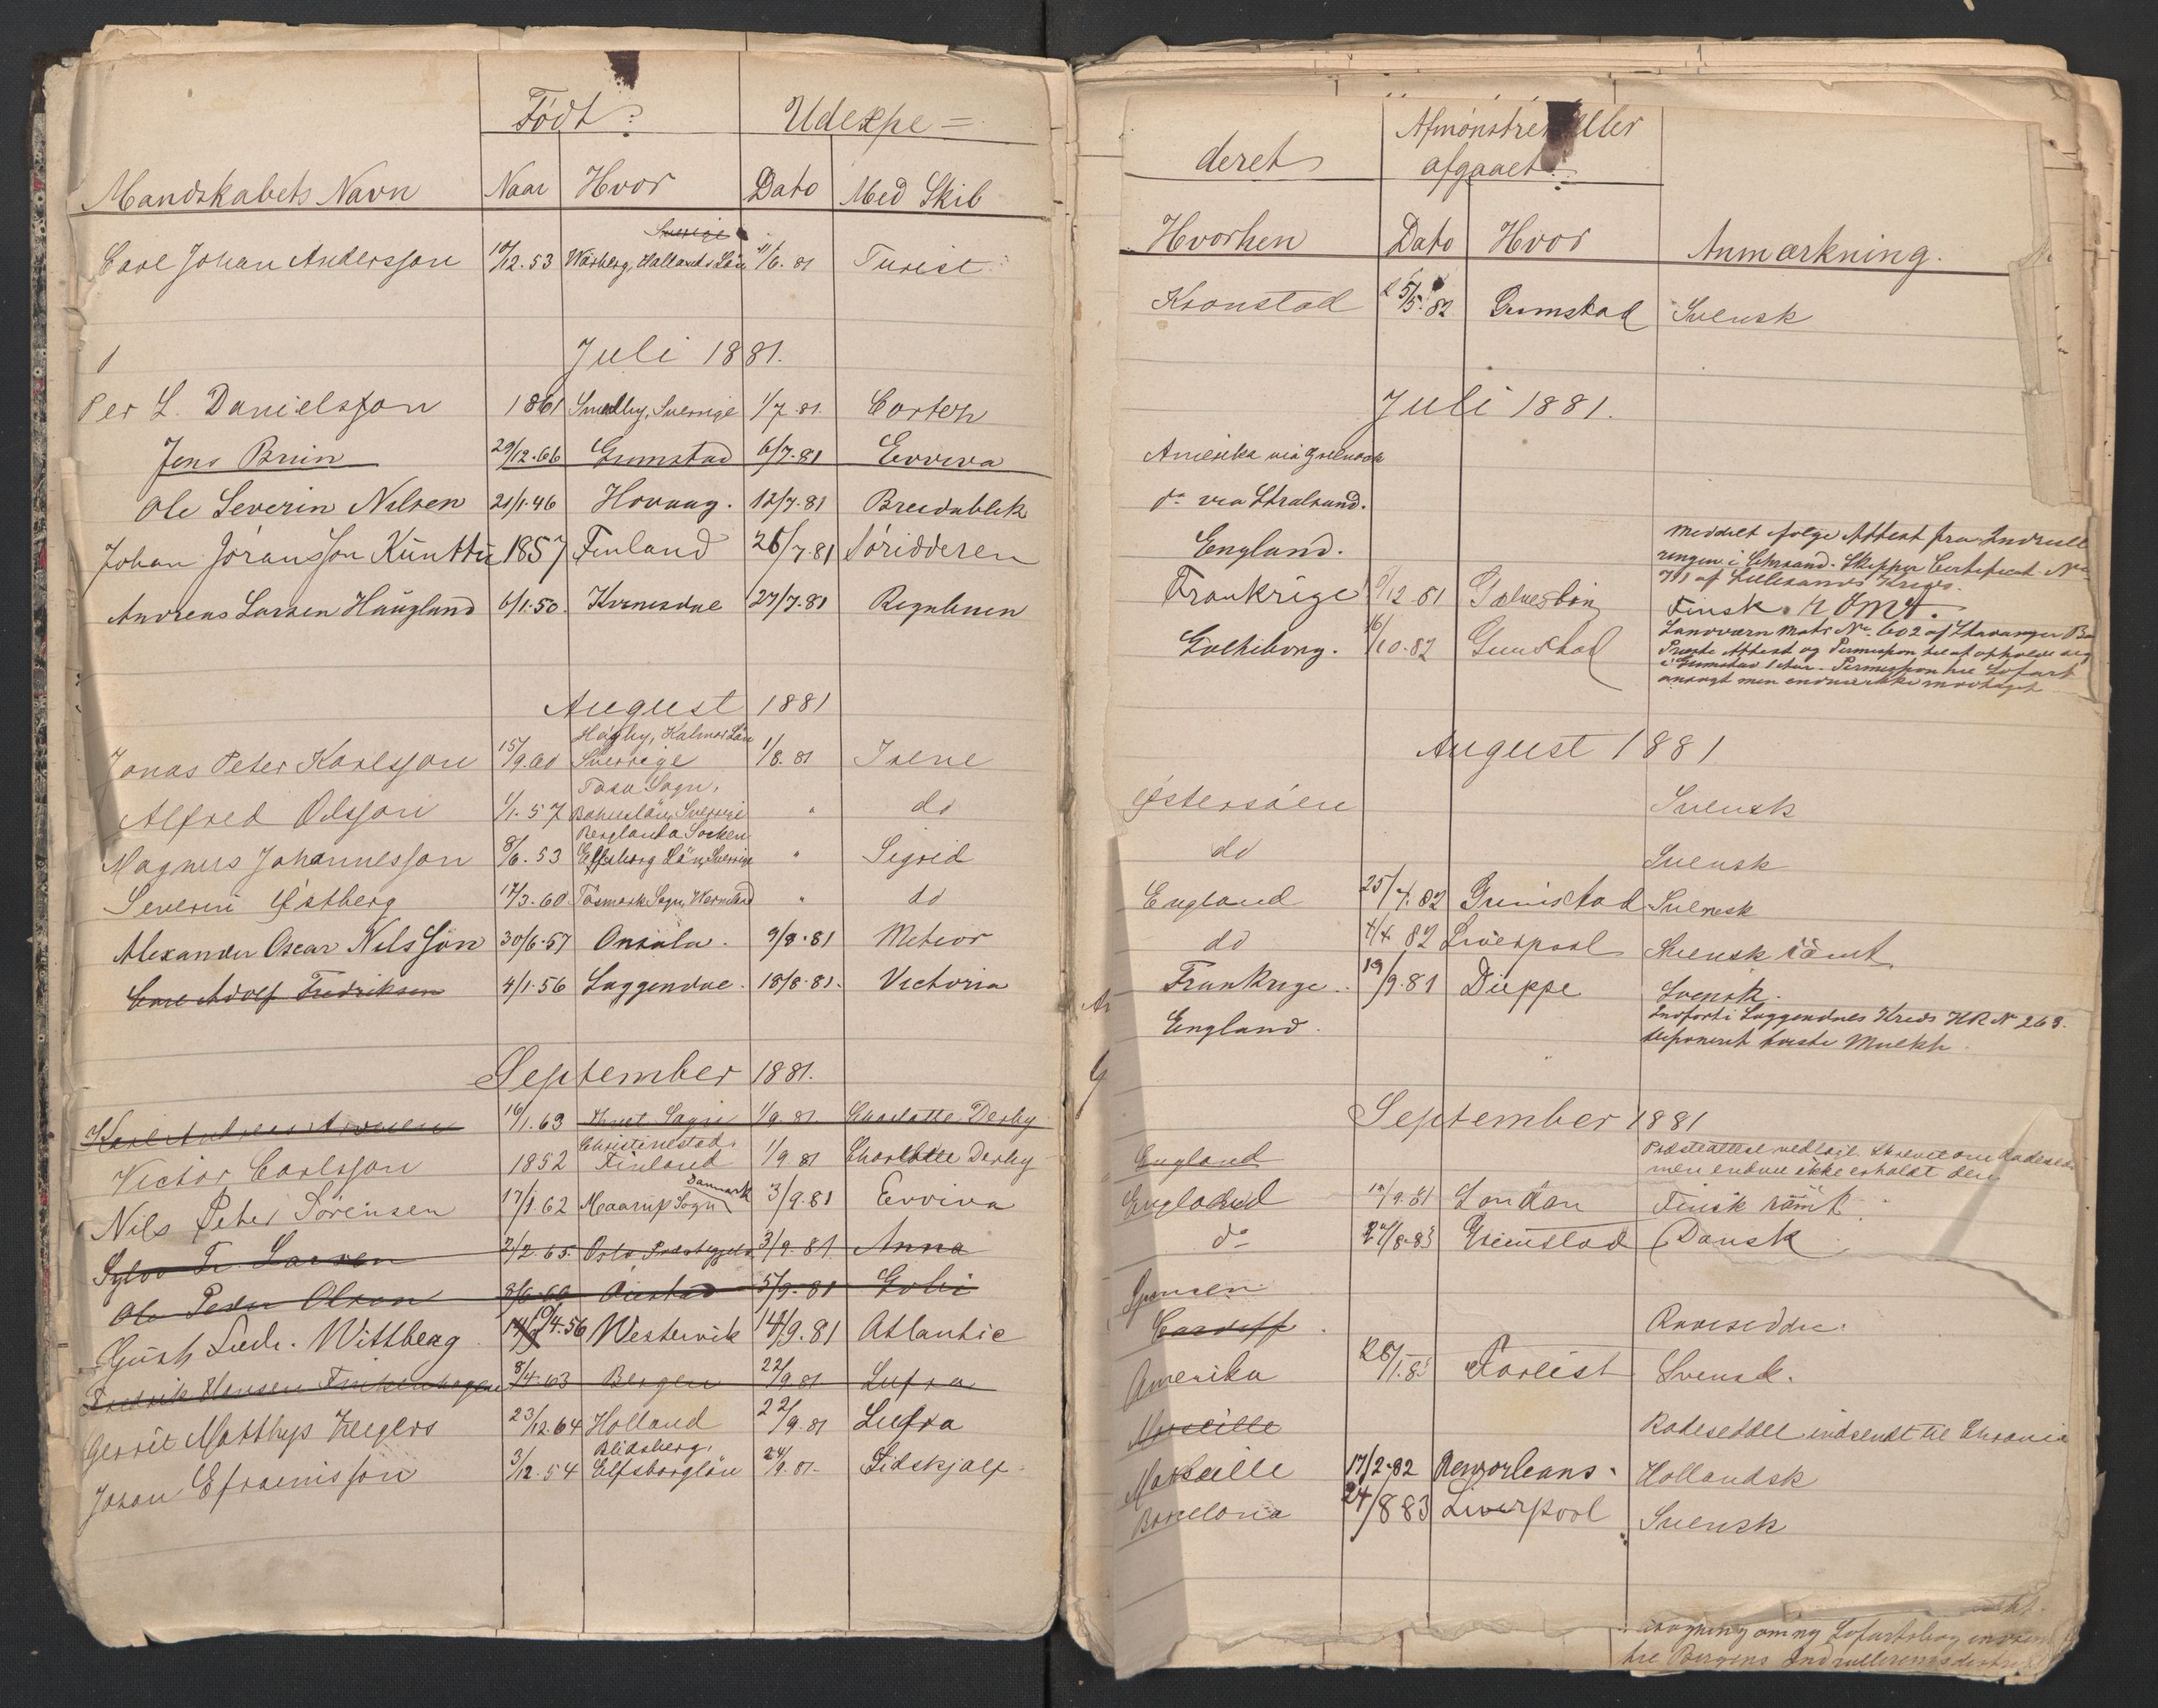 Født:
Udexpe=
Mandskabets Navn Naar Hvor Dato Med Skib
Sverige
Carl Johan Andersson 10/12.53 Warberg, Hallands Län 11/6.81 Turist
Juli 1881.
Per L. Danielsson 1861 Smedby, Sverrige 1/7.81. Cortez
Jens Bruin 29/12.66 Grimstad 6/7.81 Evviva
Ole Severin Nilsen 21/1.46 Hovaag. 12/7.81 Breidablik
Johan Jöransson Künttü 1857 Finland 26/7.81 Söridderen
Andreas Larsen Haugland 6/1.50. Kvinesdal 27/7.81
August 1881
Högby, Kalmar Län
Jonas Peter Karlsson 15/9.60 Sverrige 1/8.81 Irene
Sogn,
Alfred Olsson 1/1.57 Bohuslän, Sverrige " do
Berglanda Socken
Magnus Johannesson 8/6.53 Elfsborg Län, Sverrige " Sigrid
Severin Østberg 17/3.60 Sogn, Wermland " do
Alexander Oscar Nilsson 30/6.57 Onsala. 9/8.81 Meteor
Carl Adolf Fredriksen 4/1.56 Laggendal. 18/8.81. Victoria
September 1881.
16/1.63 Sogn 1/9.81. Charlotte Derby
Christinestad.
Victor Carlsson 1852 Finland 1/9.81 Charlotte Derby
Danmark
Nils Peter Sörensen 17/1.62 Maarup Sogn 3/9.81 Evviva
Larsen 2/2.65. Oslo 3/9.81 Anna
Ole Peder Olsen 5/9.81
Gust. Wittberg 10/4.56 Westervik 14/9.81 Atlantic
Fredrik Hansen Finkenhagen 8/4.63 Bergen 22/9.81 Lufra
Gerrit Matthys Zeegers 23/12.64 Holland 22/9.81 Lufra
Blidsberg,
Johan Efraimsson 3/12.54 Elfsborglän 24/9.81. Lidskjalf
deret
Afmönstret eller
afgaaet.
Hvorhen Dato Hvor Anmærkning.
Kronstad 5/5.82 Grimstad Svensk
Juli 1881.
Amerika via Greenock
do via Stralsund.
England.
Meddelt følge Attest fra Indrull
ringen i Chrsand. Skipper Certificat No
711 af Lillesands Kreds.
Frankrige 6/12.81 Galveston Finsk. römt.
Gothiborg. 16/10.82 Grimstad
Landværn Matr No. 602 af Stavanger
Præste Attest og Permission til at opholde sig
i Grimstad Permission til Sofart
ansøgt men endnu ikke modtaget
August 1881
Østersöen Svensk
do Svensk
England 25/4.82 Grimstad Svensk
do 4/4 82 Liverpool Svensk römt
Frankrige. 19/9.81 Dieppe Svensk.
England.
Indfort i Laggendals Kreds HR No 268.
deponeret første Mulkt.
September 1881
England
Præsteattest vedlagt. Skrevet om Rodeseddel
men endnu ikke erholdt den
England 12/9.81 London Finsk römt.
do 27/8.83 Grimstad Dansk
Spanien
Cardiff. Rodeseddel.
Amerika 28/1.83 Svensk.
Marseille Rodeseddel indsendt til Chrania
Marseille 17/2.82 Neworleans. Hollandsk
Barcelona 24/8 83 Liverpool Svensk
om ny Sofartsbog
til Bergens Indrulleringsdistrikt